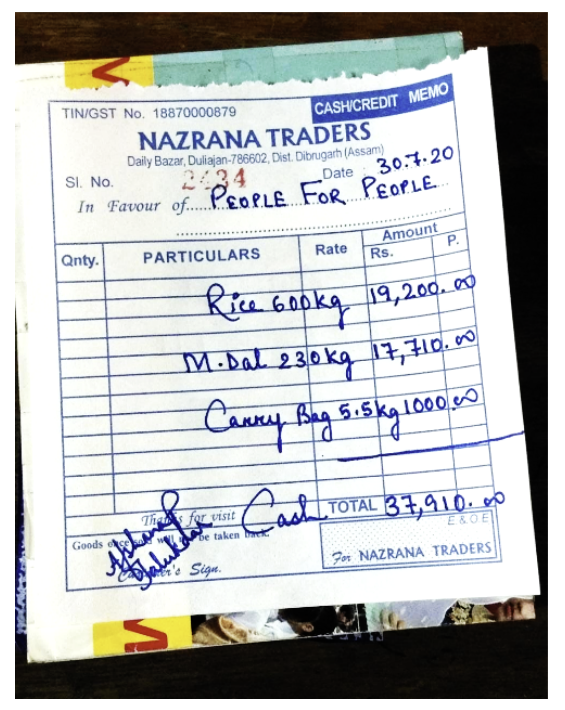 TIN/GST No. 18870000879 CASH/CREDIT MEMO
NAZRANA TRADERS
Daily Bazar, Duliajan-786602, Dist. Dibrugarh (Assam)
Sl. No. 2434 Date 30.7.20
In Favour of PEOPLE FOR PEOPLE
Qnty. PARTICULARS Rate Amount
Rs. P.
Rice 600kg 19,200.00
M.Dal 230kg 17,710.00
Carry Bag 5.5kg 1000.00
Thanks for visit Cash TOTAL 37,910.00
E & O E
Goods once sold will be taken back.
Customer's Sign. For NAZRANA TRADERS